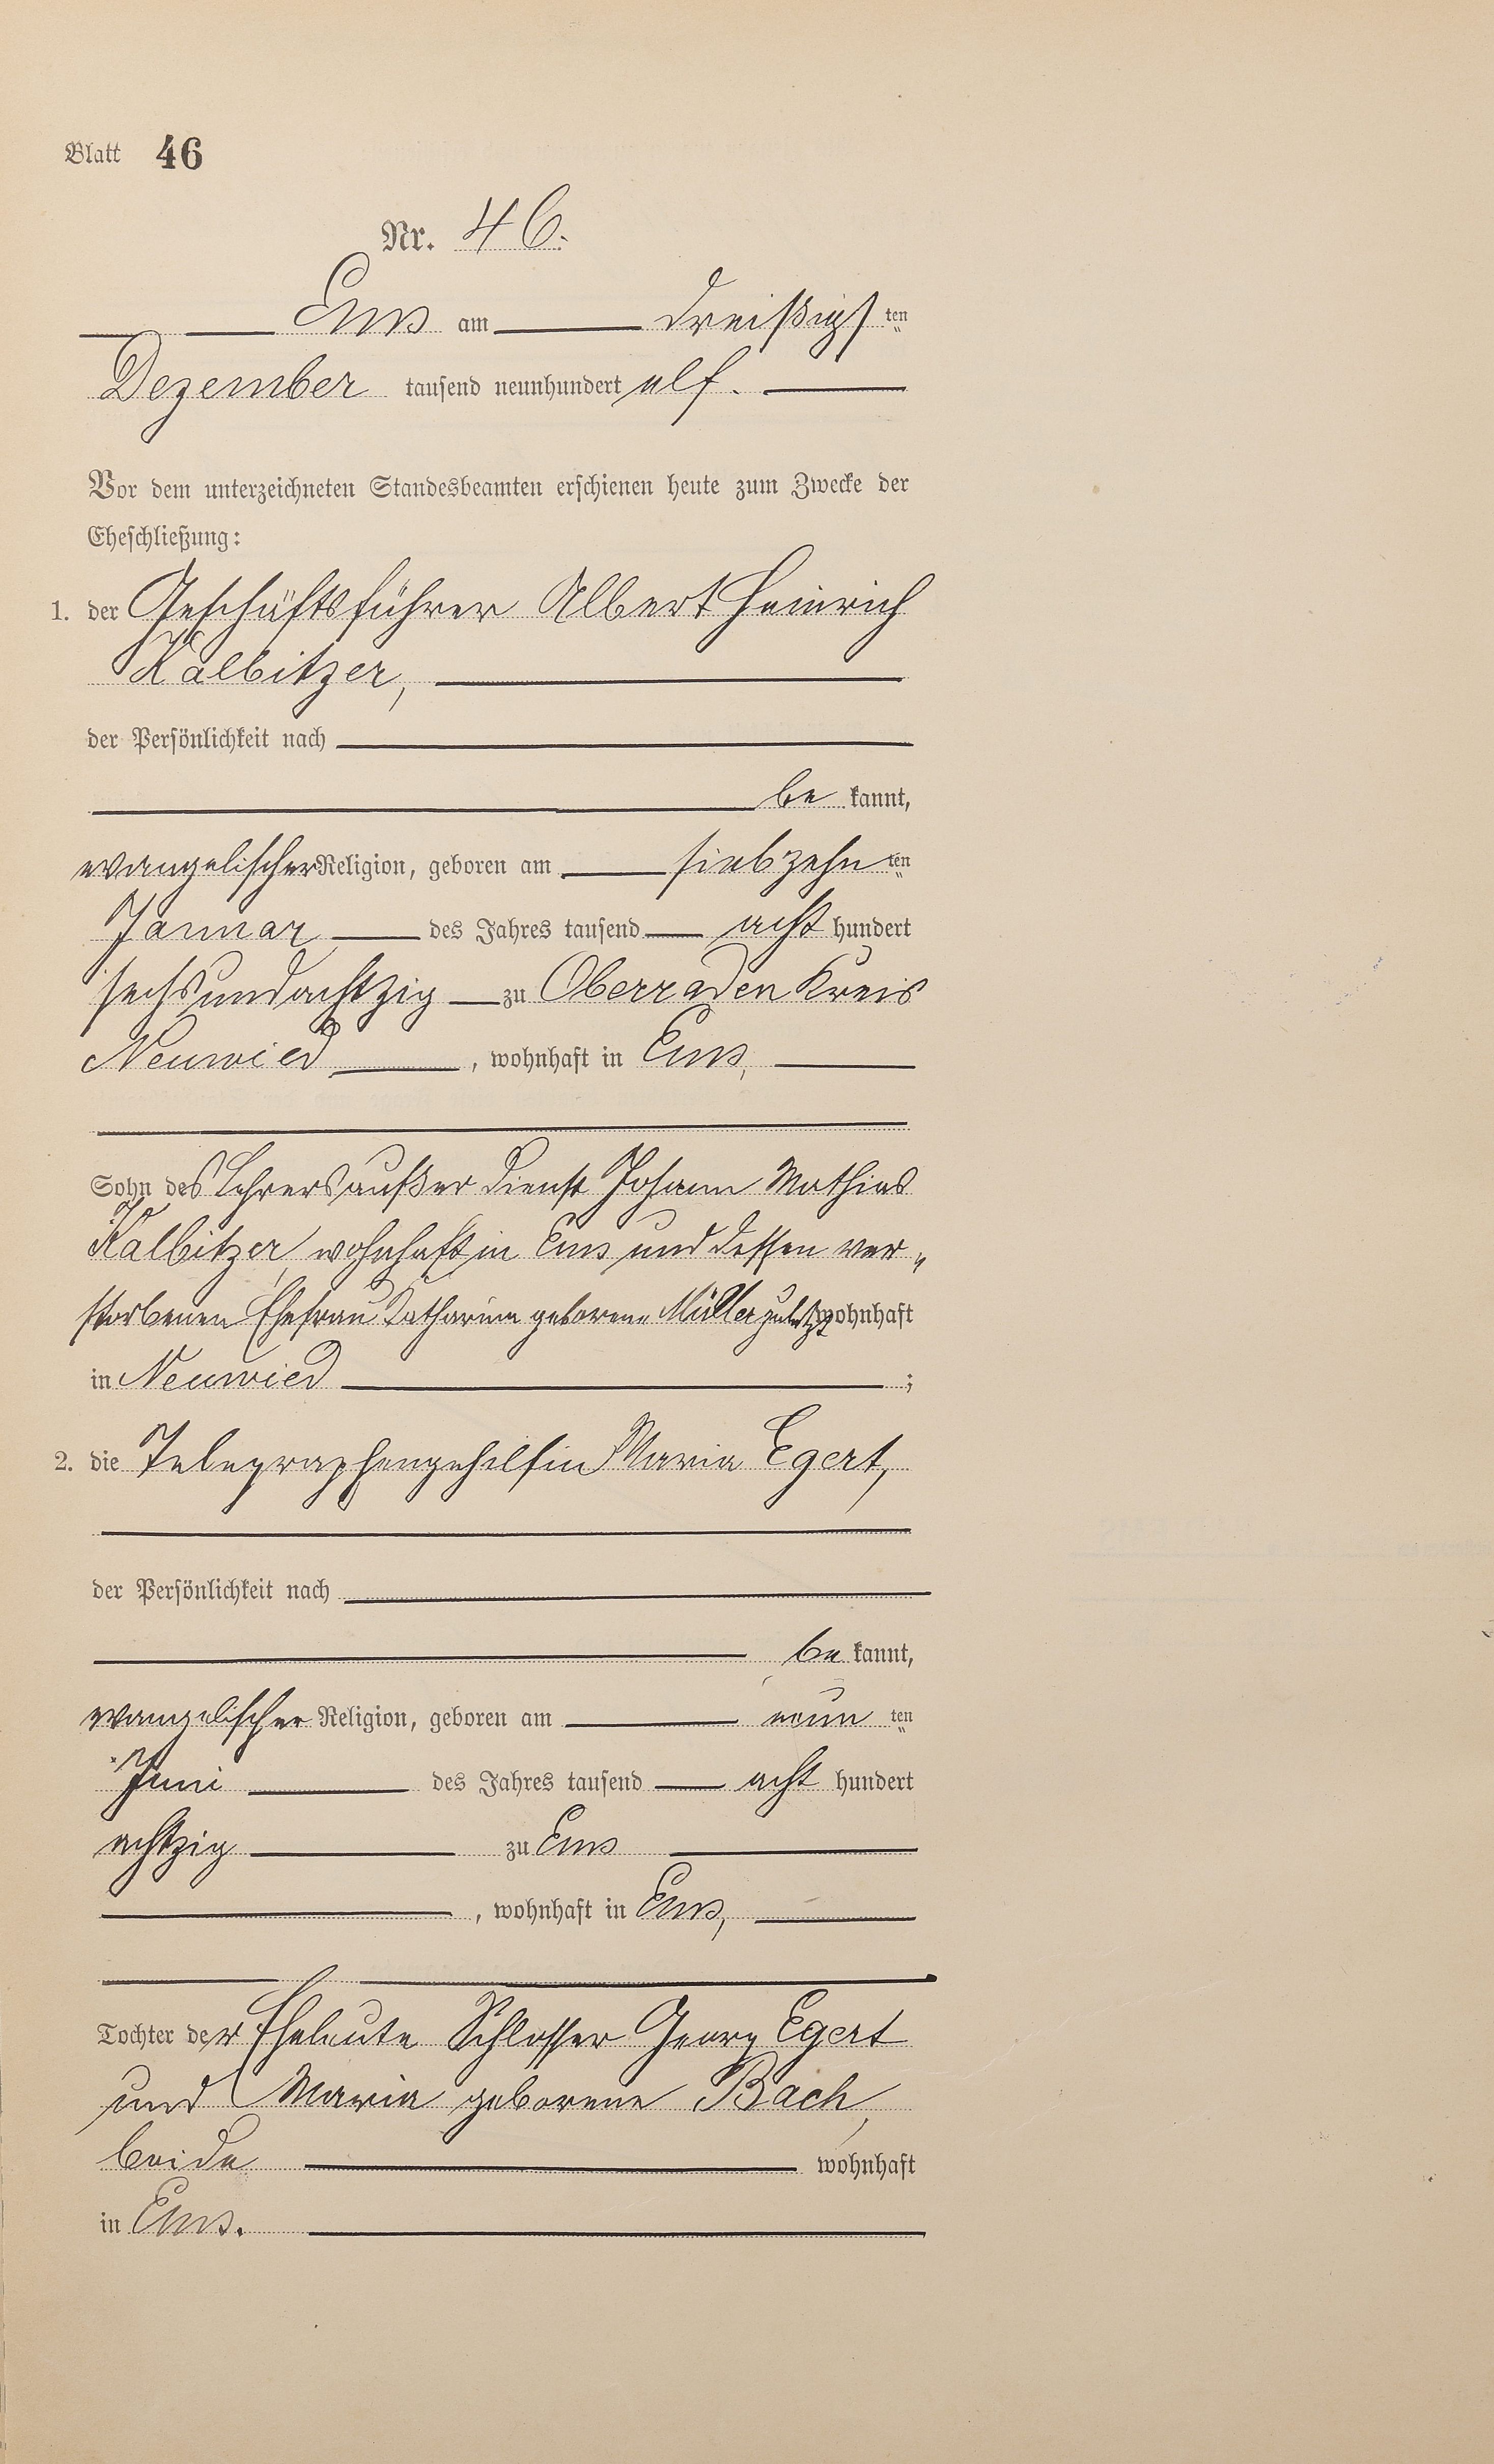 Blatt 46
Nr. 46.
Ems am dreißigsten
Dezember tausend neunhundert elf.
Vor dem unterzeichneten Standesbeamten erschienen heute zum Zwecke der
Eheschließung:
1. der Geschäftsführer Albert Heinrich
Kalbitzer,
der Persönlichkeit nach
be kannt,
evangelischer Religion, geboren am siebzehn ten
Januar des Jahres tausend acht hundert
sechsundachtzig zu Oberraden Kreis
Neuwied, wohnhaft in Ems,
Sohn des Lehrers außer Dienst Johann Mathias
Kalbitzer, wohnhaft in Ems und dessen ver„
storbenen Ehefrau Katharina geborene Müller zuletzt wohnhaft
in Neuwied ;
2. die Telegraphengehilfin Maria Egert,
der Persönlichkeit nach
be kannt,
evangelischer Religion, geboren am neun ten
Juni des Jahres tausend acht hundert
achtzig zu Ems
, wohnhaft in Ems,
Tochter der Eheleute Schlosser Georg Egert
und Maria geborene Bach,
beide wohnhaft
in Ems.